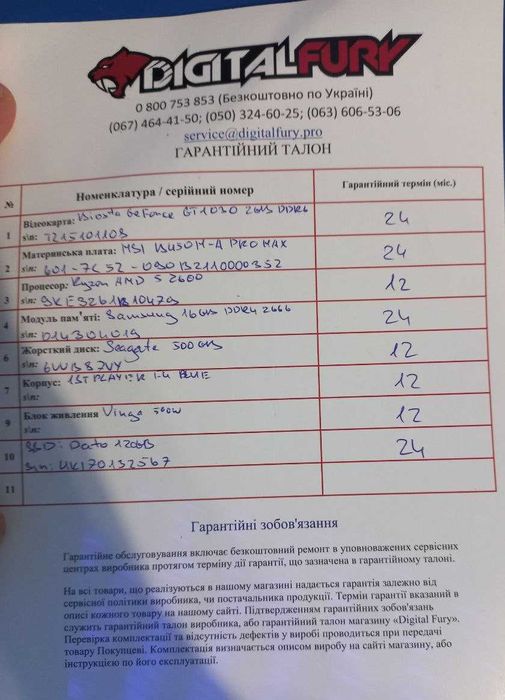 DIGITALFURY
0 800 753 853 (Безкоштовно по Україні)
(067) 464-41-50; (050) 324-60-25; (063) 606-53-06
service@digitalfury.pro
ГАРАНТІЙНИЙ ТАЛОН
№ Номенклатура / серійний номер Гарантійний термін (міс.)
1 Відеокарта: GeForce GT1030 2GB DDR4 24
s\n: 7215101103
2 Материнська плата: MSI B450M-A PRO MAX 24
s\n: 601-7C52-090B2110000352
3 Процесор: Ryzen AMD 5 2600 12
s\n:
4 Модуль пам'яті: Samsung 16GB DDR4 2666 24
s\n: D14304019
6 Жорсткий диск: Seagate 500GB 12
s\n:
7 Корпус: 1ST PLAYER BLUE 12
s\n:
9 Блок живлення Vinga 500W 12
s\n:
10 SSD: Dato 120GB 24
s\n: HK170132567
11
Гарантійні зобов'язання
Гарантійне обслуговування включає безкоштовний ремонт в уповноважених сервісних
центрах виробника протягом терміну дії гарантії, що зазначена в гарантійному талоні.
На всі товари, що реалізуються в нашому магазині надається гарантія залежно від
сервісної політики виробника, чи постачальника продукції. Термін гарантії вказаний в
описі кожного товару на нашому сайті. Підтвердженням гарантійних зобов'язань
служить гарантійний талон виробника, або гарантійний талон магазину «Digital Fury».
Перевірка комплектації та відсутність дефектів у виробі проводиться при передачі
товару Покупцеві. Комплектація визначається описом виробу на сайті магазину, або
інструкцією по його експлуатації.